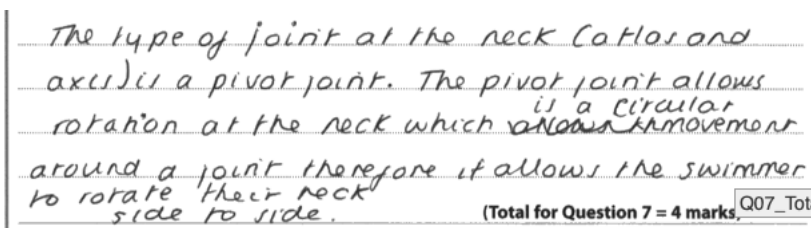 The type of joint at the neck (atlas and
axis) is a pivot joint. The pivot joint allows
rotation at the neck which is a circular movement
around a joint therefore it allows the swimmer
to rotate their neck
side to side.
(Total for Question 7 = 4 marks)
Q07_Tot